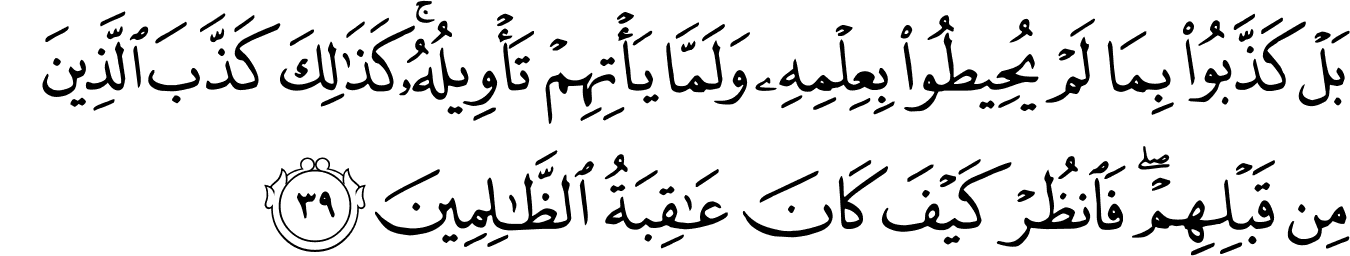 بَلْ كَذَّبُوا۟ بِمَا لَمْ يُحِيطُوا۟ بِعِلْمِهِۦ وَلَمَّا يَأْتِهِمْ تَأْوِيلُهُۥ ۚ كَذَٰلِكَ كَذَّبَ ٱلَّذِينَ
مِن قَبْلِهِمْ ۖ فَٱنظُرْ كَيْفَ كَانَ عَـٰقِبَةُ ٱلظَّـٰلِمِينَ ٣٩